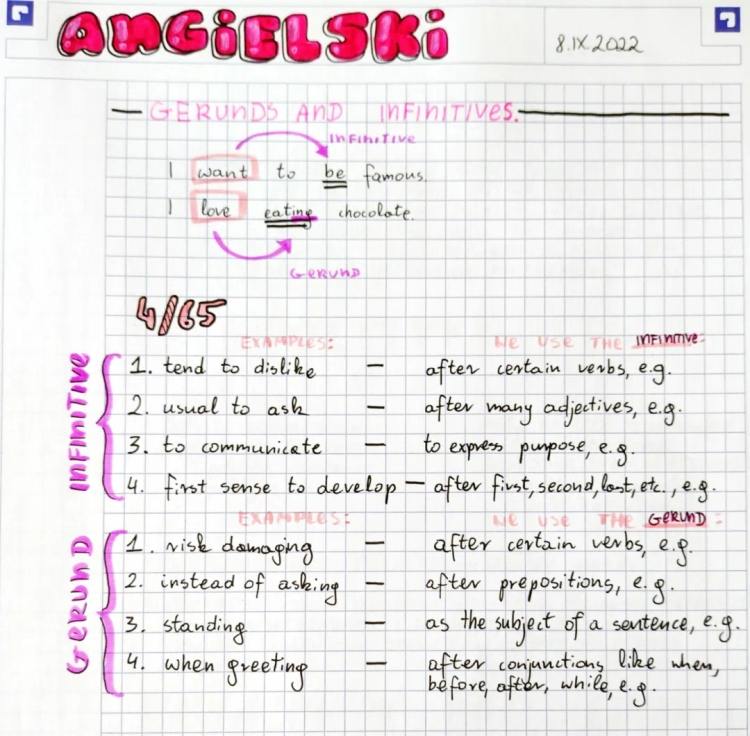 ANGIELSKI 8.IX.2022
GERUNDS AND INFINITIVES.
INFINITIVE
I want to be famous.
I love eating chocolate.
GERUND
4/65
EXAMPLES: WE USE THE INFINITIVE:
INFINITIVE
1. tend to dislike — after certain verbs, e.g.
2. usual to ask — after many adjectives, e.g.
3. to communicate — to express purpose, e.g.
4. first sense to develop — after first, second, last, etc., e.g.
EXAMPLES: WE USE THE GERUND:
GERUND
1. risk damaging — after certain verbs, e.g.
2. instead of asking — after prepositions, e.g.
3. standing — as the subject of a sentence, e.g.
4. when greeting — after conjunctions like when,
before, after, while, e.g.